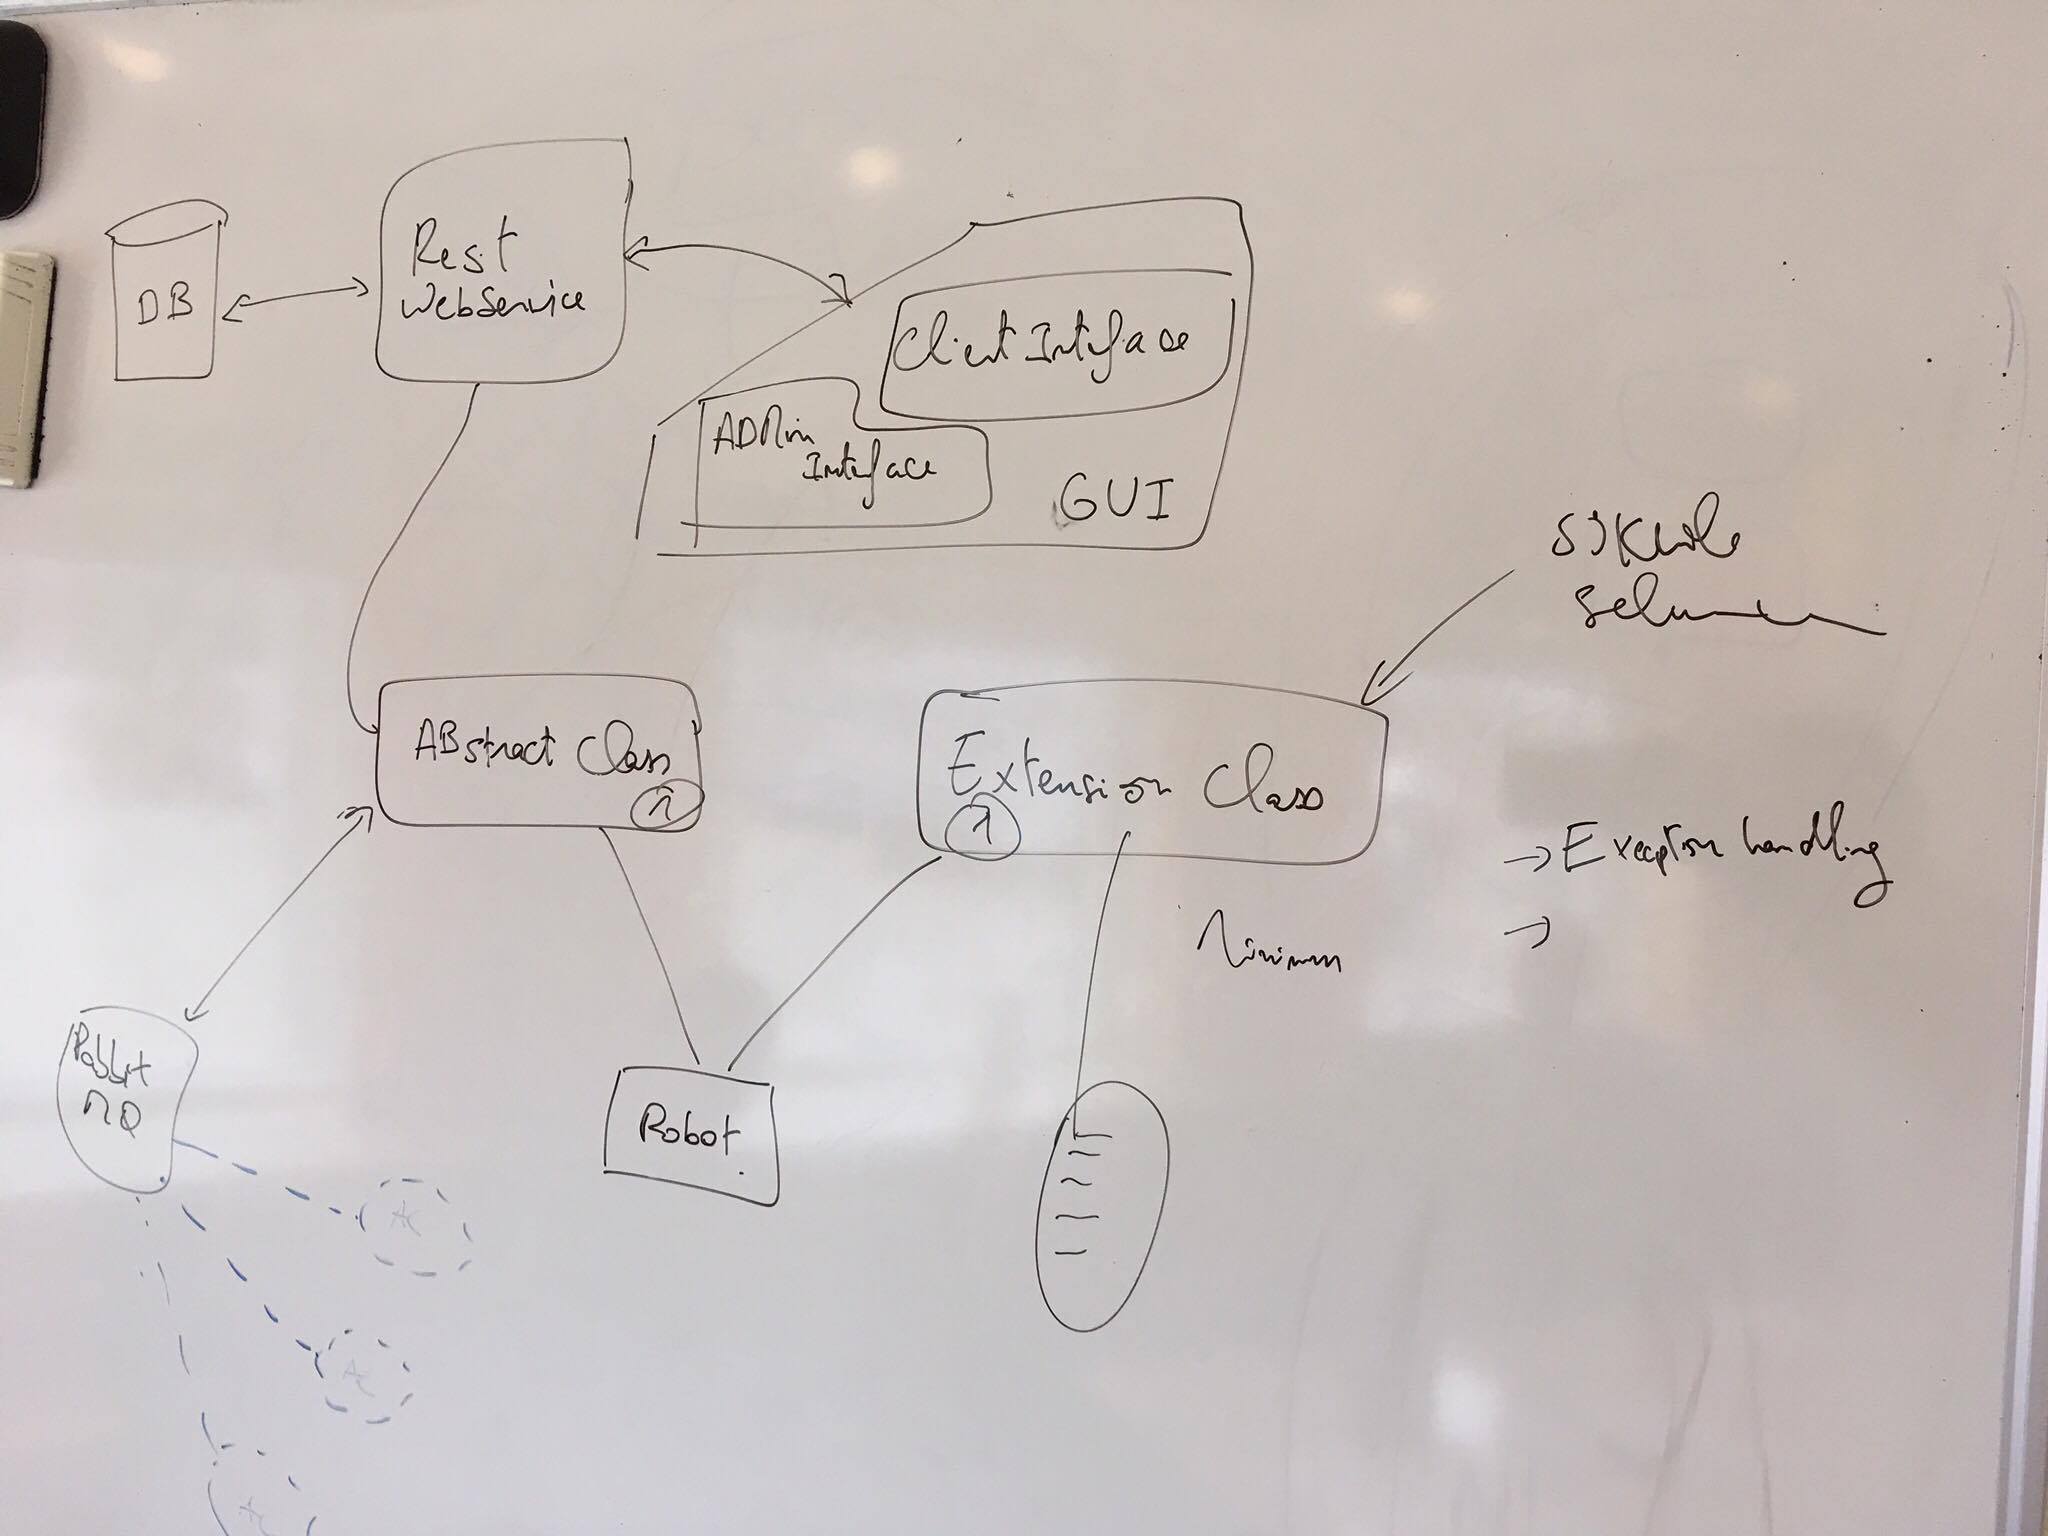 DB
Rest
WebService
Client Interface
ADMin
Interface
GUI
ABstract Class
1
Extension Class
1
→ Exception handling
→
Minimum
Rabbit
MQ
Robot
AC
AC